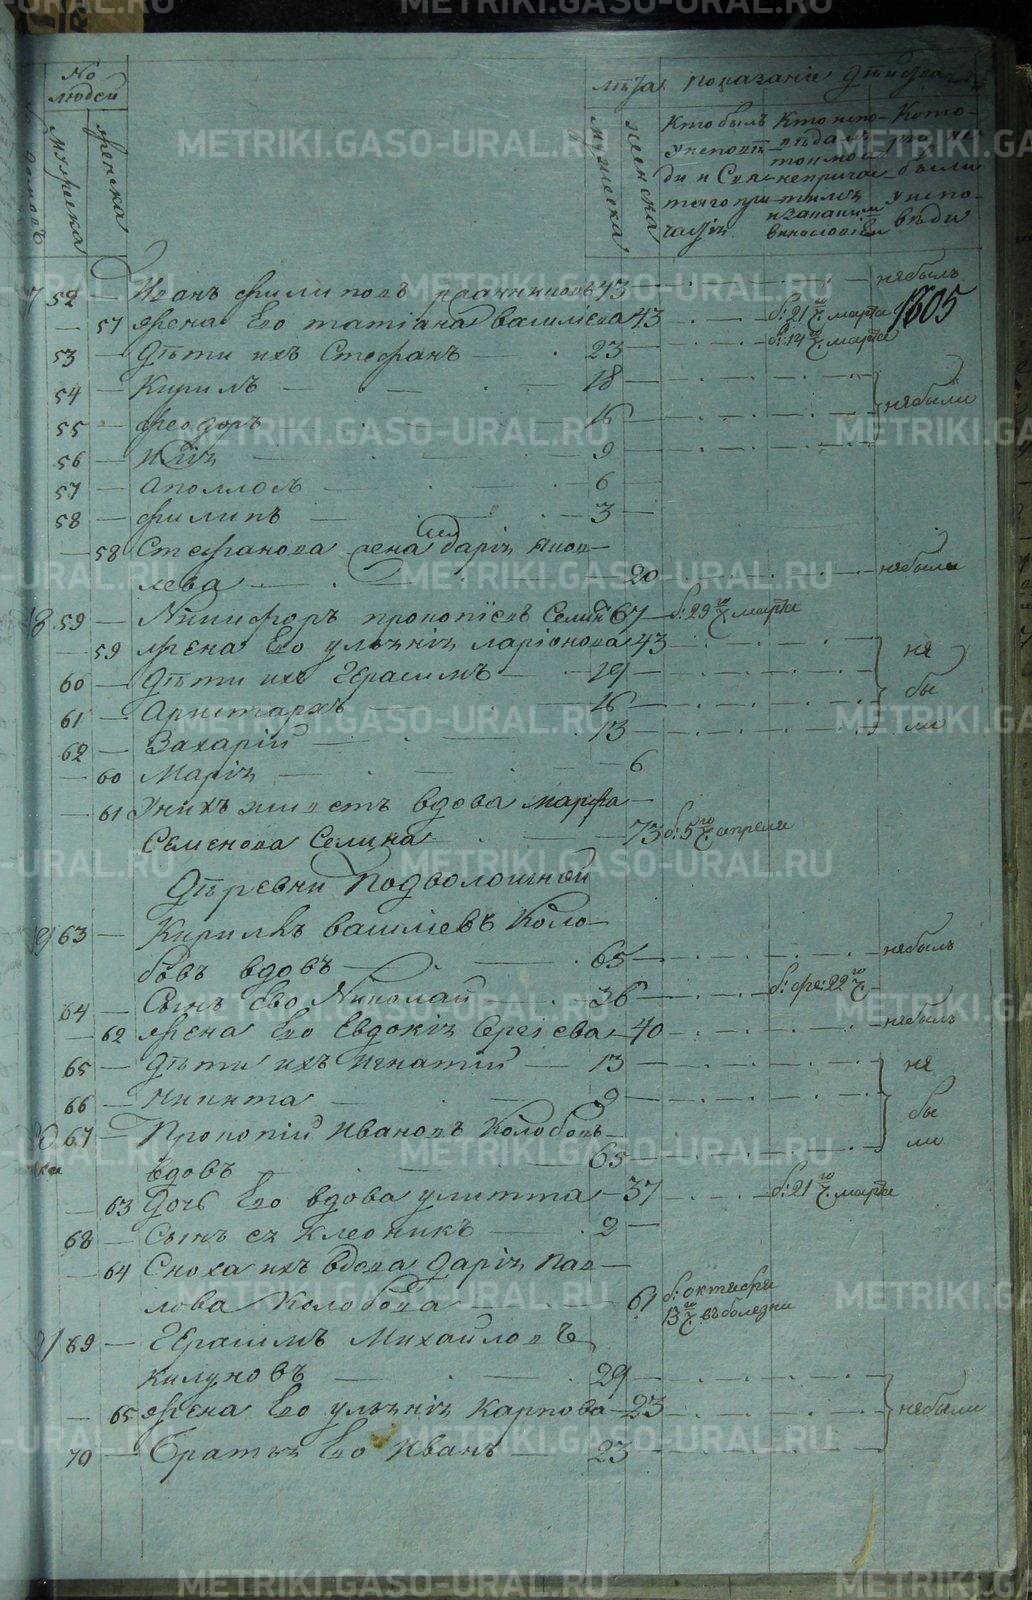 No людей
мужеска
женска
лѣта
мужеска
женска
показаніе дѣйства
Кто былъ у исповѣди и Святаго при
Кто испо
вѣдал
но не причас
тилися
и за каким
винословіем
Кото
рые не
были
у испо
вѣди
52 — Иванъ филиповъ 43 небылъ
1805
57 жена Его татіана василіева 43 б: 21го ч. марта
53 — дѣти ихъ Стефанъ 23 б: 14го ч. марта
54 — Кирилъ 18
55 — феодоръ 16 небыли
56 — Илія 9
57 — Аполлосъ 6
58 — филипъ 3
58 Стефанова жена дарія Яков
лева 20 небыла
18 59 — Никифоръ прокопіевъ Селин 67 б: 29го ч. марта
59 жена Его уліянія ларіонова 43 не
60 — дѣти ихъ Герасимъ 19 бы
61 — Аристархъ 16 ли
62 — Захарій 13
60 Марія 6
61 У нихъ живетъ вдова марфа
Семенова Селина 73 б: 5го ч. апреля
Дѣревни Подволошной
19 63 — Кирилъ василіевъ Коло
бовъ вдовъ 65 небылъ
64 — Сынъ Его Николай 36 б: фе: 22го ч.
62 жена Его Евдокія Сергіева 40 небылъ
65 — дѣти ихъ Игнатій 13 не
66 — Никита 9 бы
67 — Прокопій Ивановъ Колобовъ ли
вдовъ 65
63 дочь Его вдова улитта 37 б: 21го ч. марта
68 — Сынъ ея клеоникъ 2
64 Сноха ихъ вдова дарія пав
лова Колобова 61 б: октября
13го ч. въ болезни
21 69 — Герасимъ Михайловъ
килуновъ 29
65 жена Его уліянія карпова 23 небыли
70 — Братъ Его Иванъ 23
METRIKI.GASO-URAL.RU